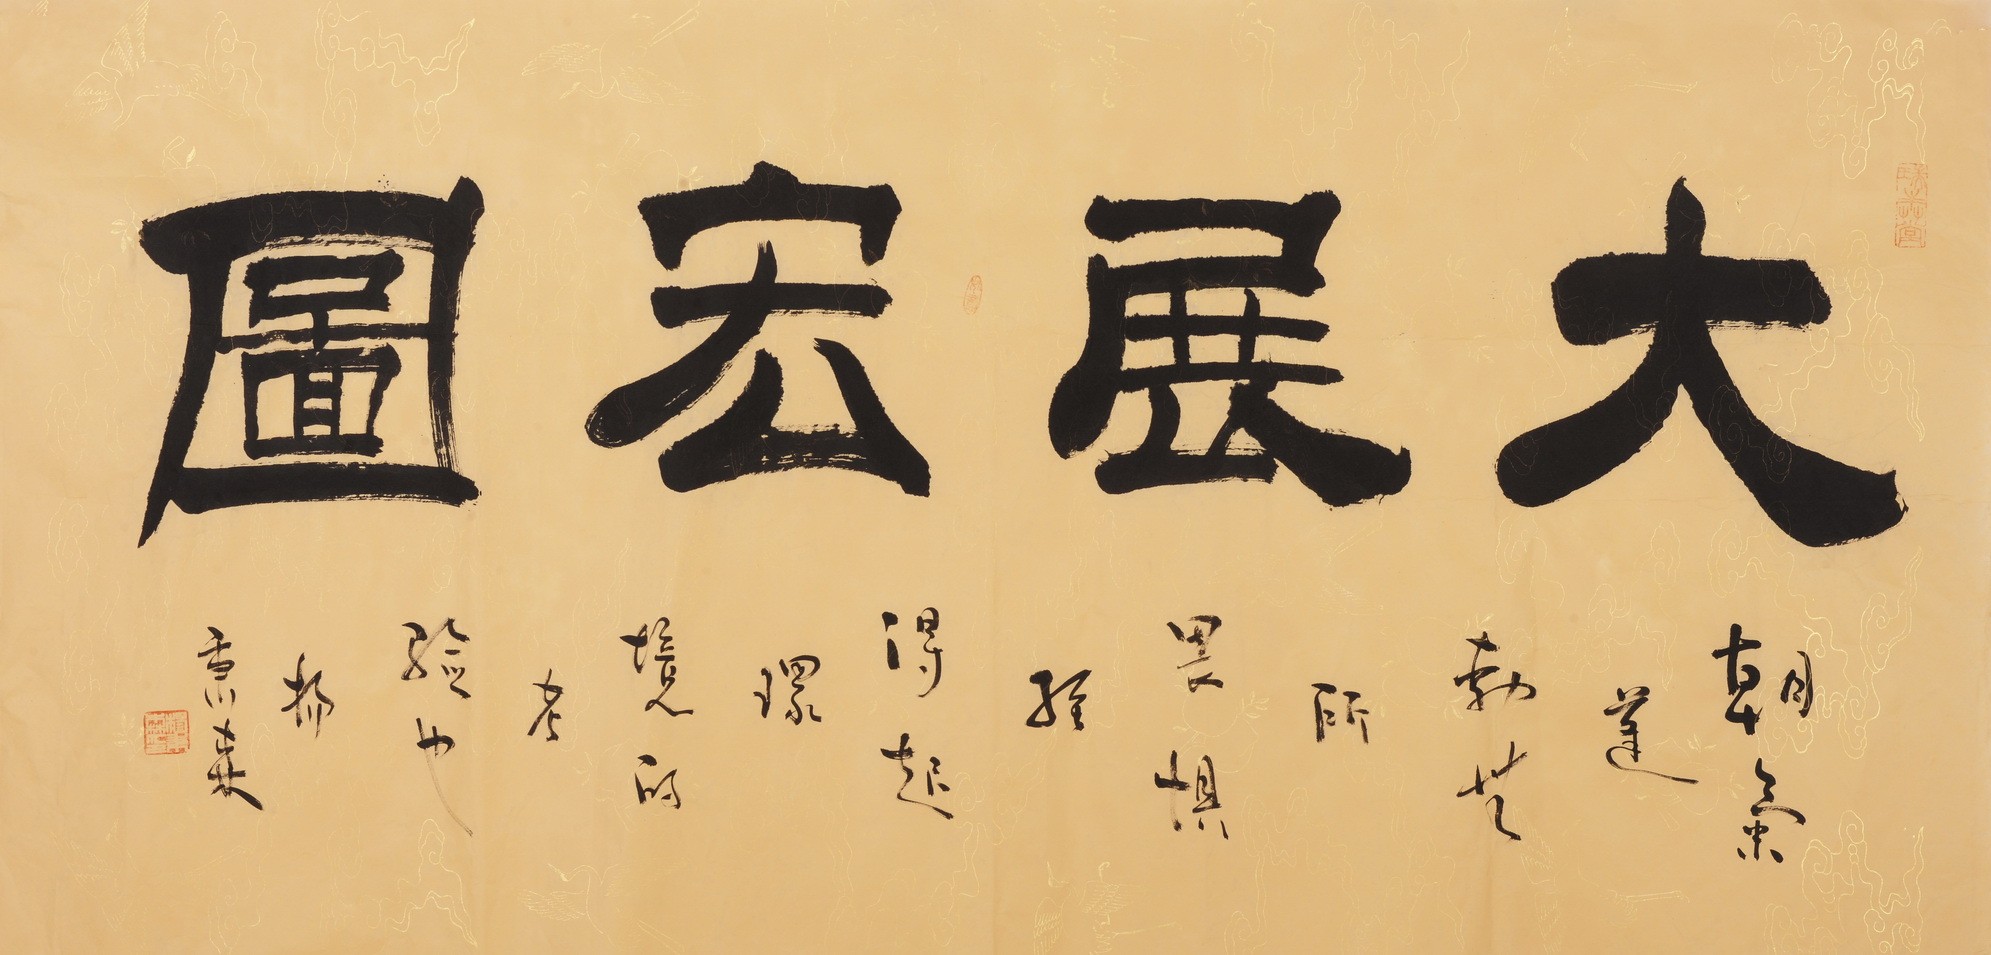 大展宏圖
朝氣
蓬
勃無
所
畏懼
經
得起
環
境的
考
驗也
楊